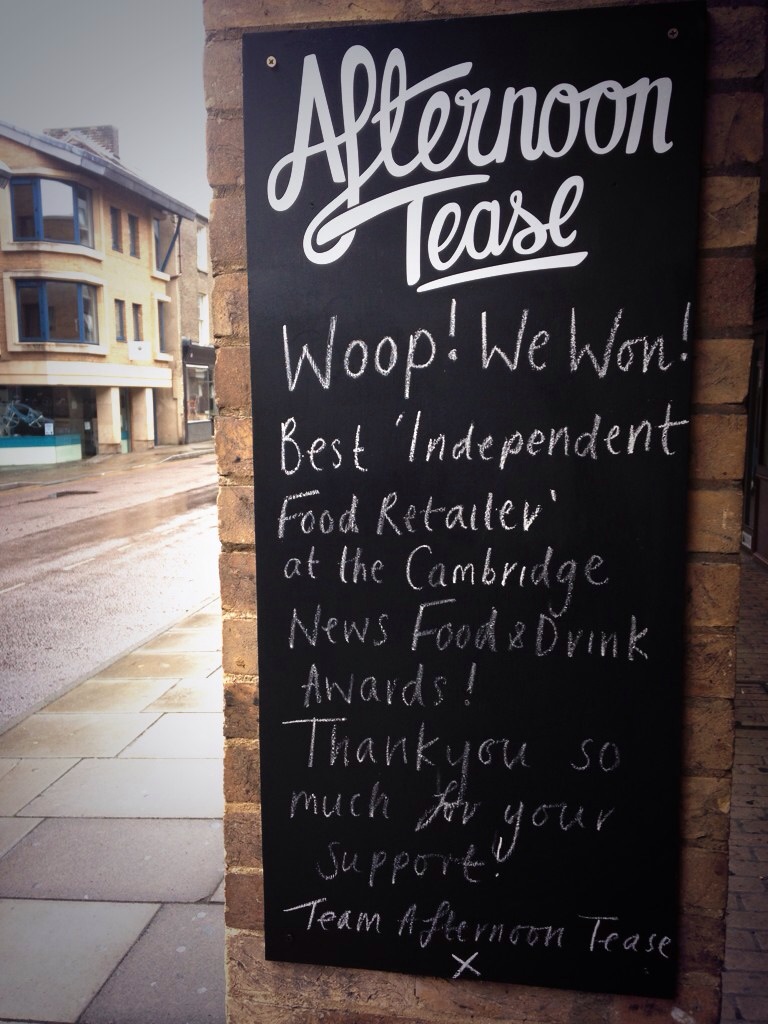 Afternoon
Tease
Woop! We Won!
Best 'Independent
Food Retailer'
at the Cambridge
News Food & Drink
Awards!
Thankyou so
much for your
support!
Team Afternoon Tease
X